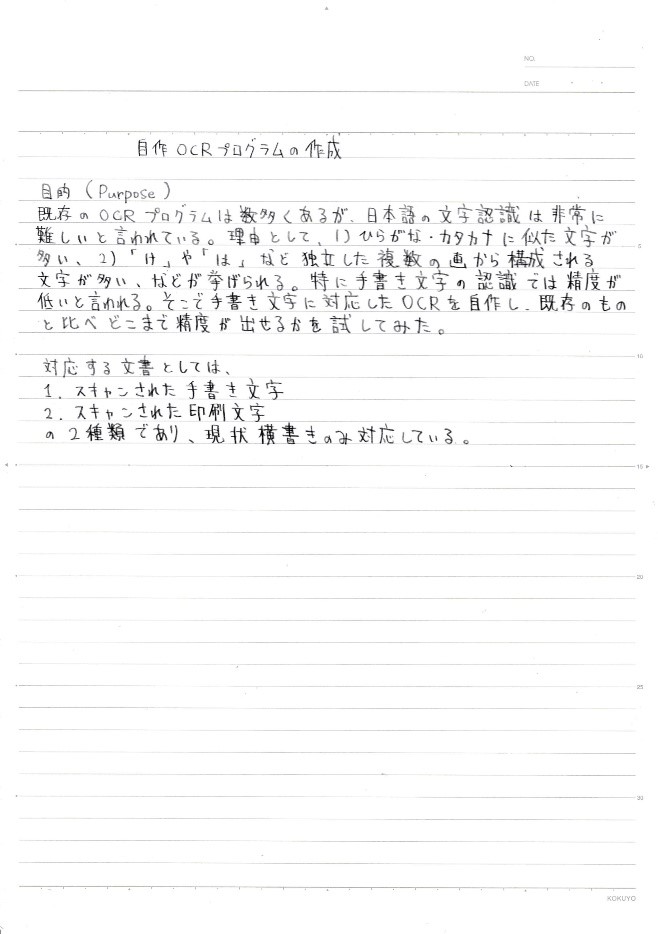 NO.
DATE
自作 OCRプログラムの作成
目的 (Purpose)
既存のOCRプログラムは数多くあるが、日本語の文字認識は非常に
難しいと言われている。理由として、1)ひらがな・カタカナに似た文字が
多い、2)「け」や「は」など独立した複数の画から構成される
文字が多い、などが挙げられる。特に手書き文字の認識では精度が
低いと言われる。そこで手書き文字に対応したOCRを自作し、既存のもの
と比べどこまで精度が出せるかを試してみた。
対応する文書としては、
1. スキャンされた手書き文字
2. スキャンされた印刷文字
の2種類であり、現状横書きのみ対応している。
5
10
15
20
25
30
KOKUYO